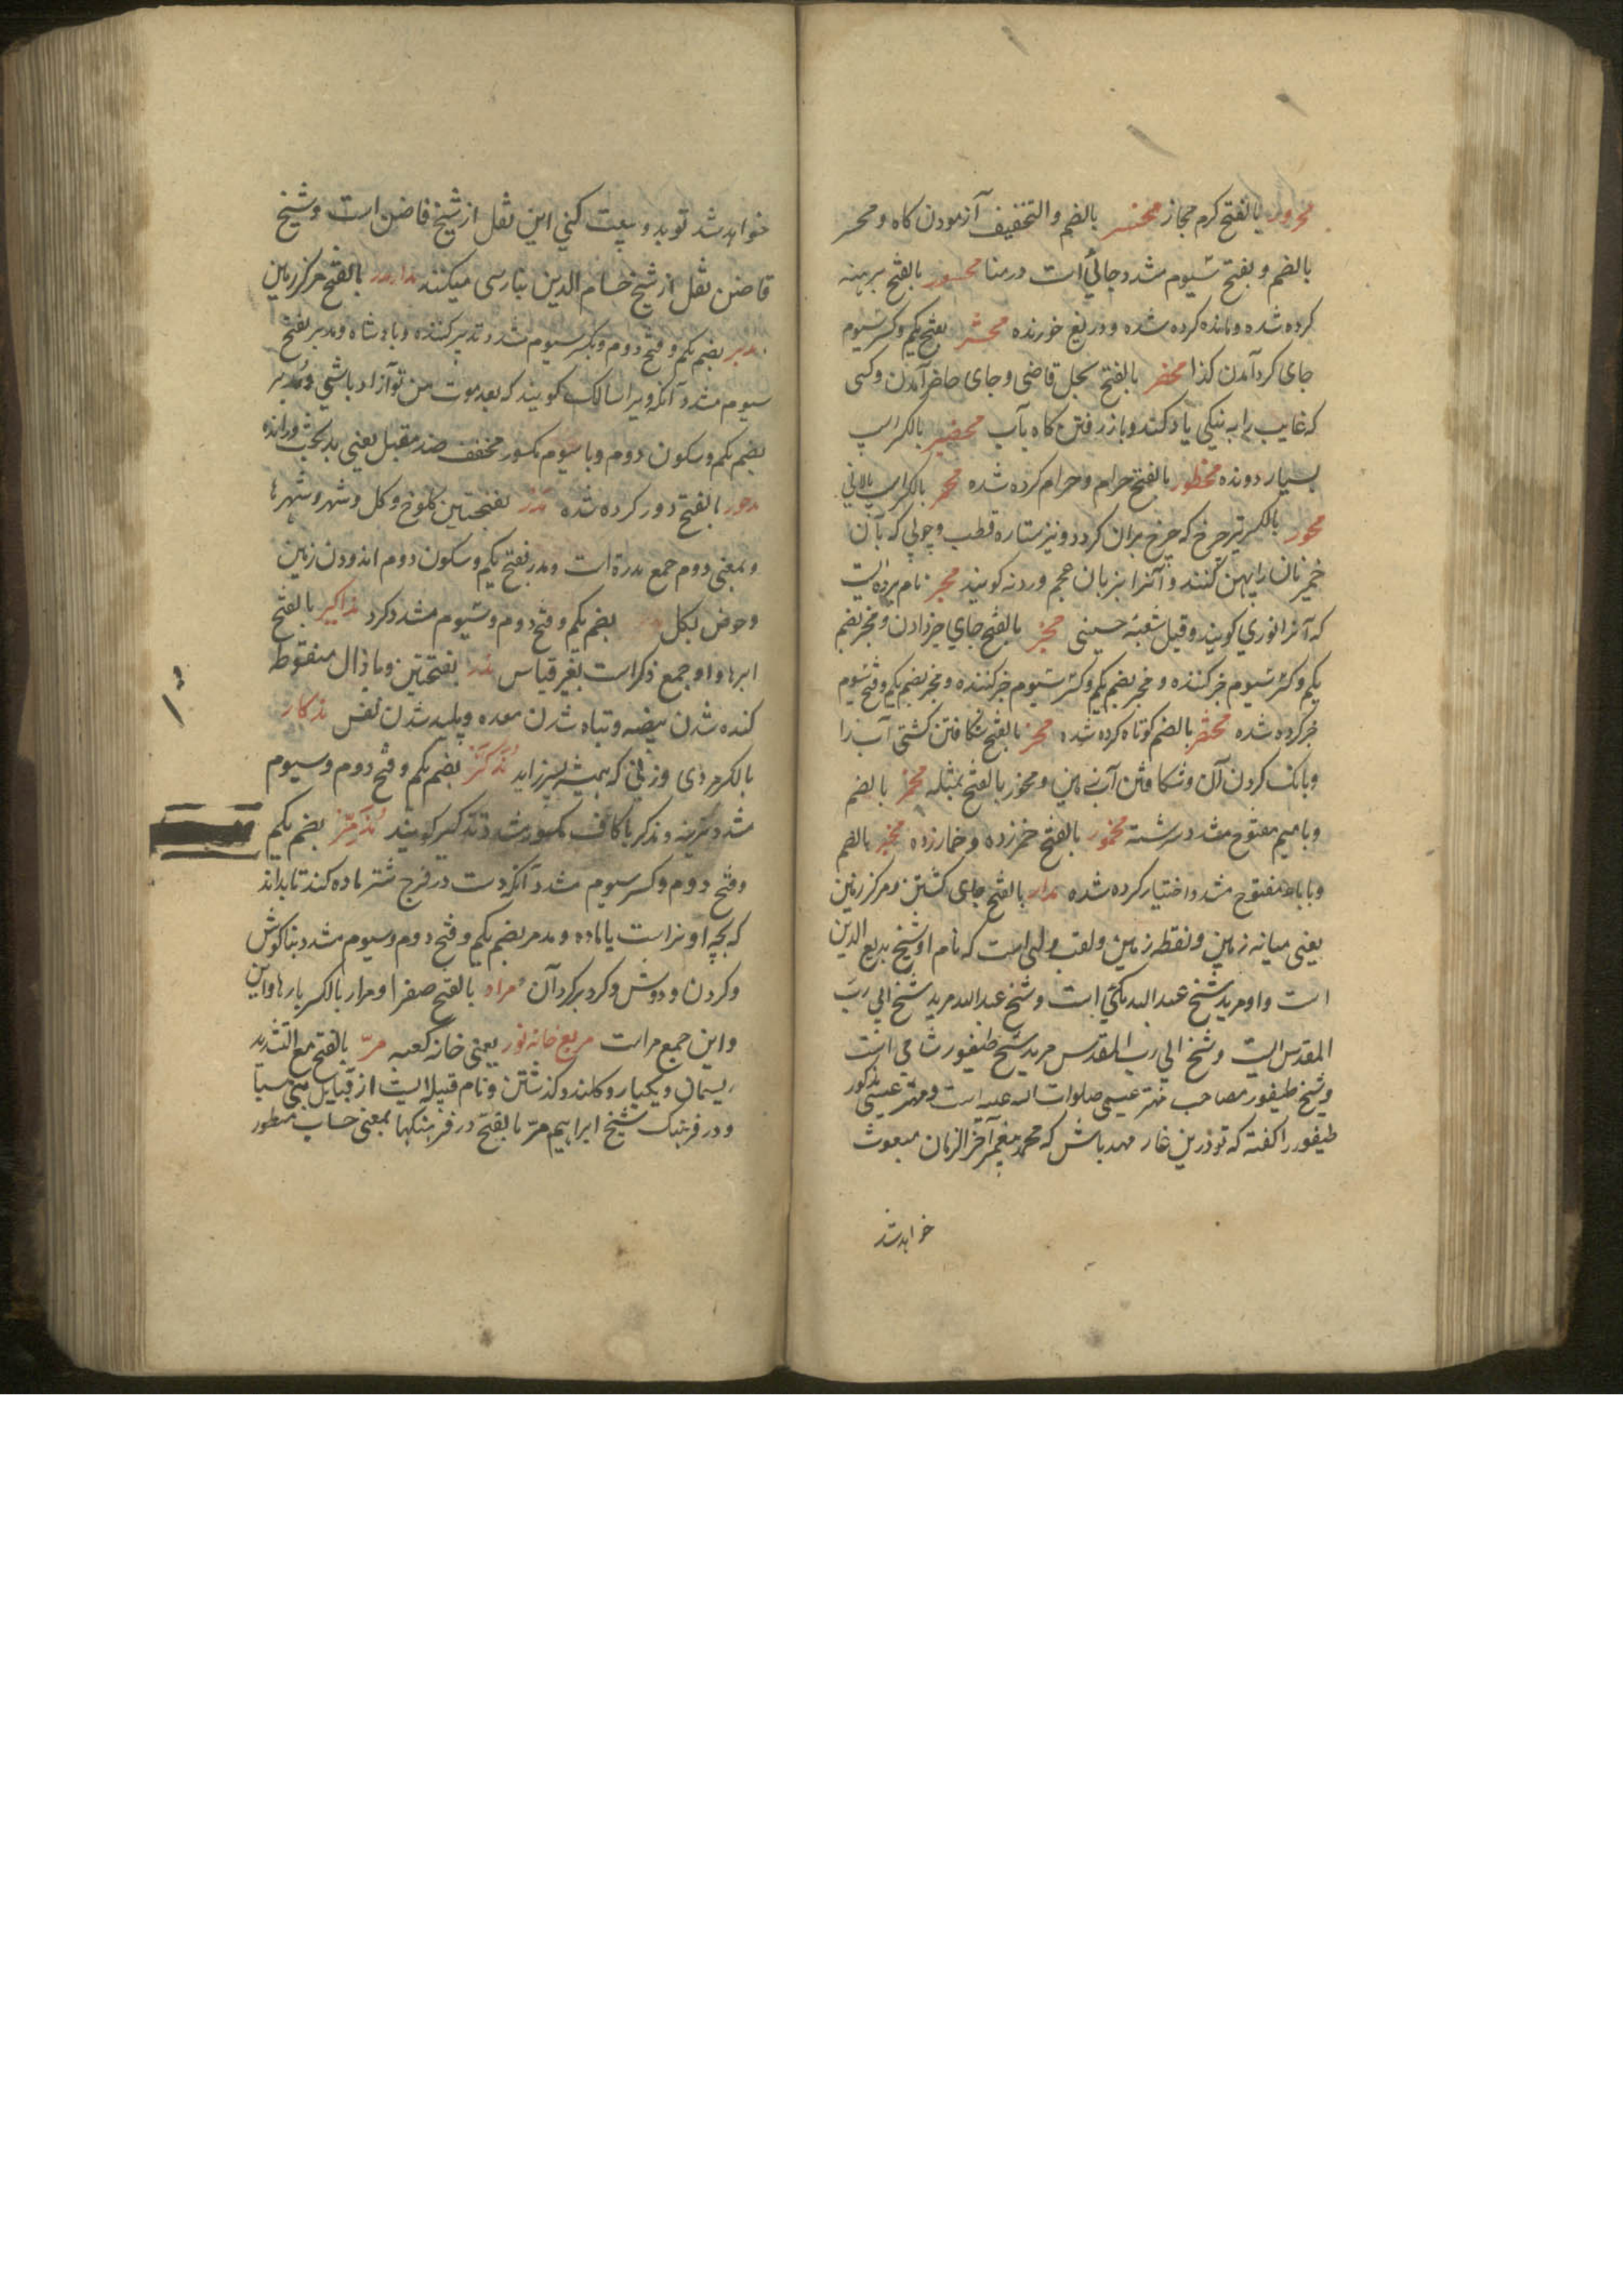 محرور بالفتح کرم مجاز محسر بالضم والتخفیف آزمودن کاه و محسر
بالضم و بفتح سیوم مشدد جائی است در منا محسور بالفتح برهنه
کرده شده و مانده کرده شده و دریغ خورنده محشر بفتح یکم و کسر سیوم
جای کرد آمدن کذا محضر بالفتح سجل قاضی و جای حاضر آمدن و کسی
که غایب را به نیکی یاد کند و باز رفتن کاه بآب محضیر بالکسر اسپ
بسیار دونده محظور بالفتح حرام و حرام کرده شده محمر بالکسر اسپ پالانی
محور بالکسر تیر چرخ که چرخ بران کردد و نیز ستاره قطب و چوبی که بآن
خمیر نان را پهن کنند و آنرا بزبان عجم وردنه کویند محیر نام پرده ایست
که آنرا نوری کویند و قیل شعبه حسینی مخبر بالفتح جای خبر دادن و مخبر بضم
یکم و کسر سیوم خبر کننده و مخبر بضم یکم و کسر سیوم خبر کننده و مخبر بضم یکم و فتح سیوم
خبر کرده شده مختصر بالضم کوتاه کرده شده مخر بالفتح شکافتن کشتی آب را
و بانک کردن آن و شکافتن آب زمین و مخور بالفتح بمثله مخمر بالضم
و با میم مفتوح مشدد سرشته مخمور بالفتح خمر زده و خمار زده مخیر بالضم
و با یاء مفتوح مشدد اختیار کرده شده مدار بالفتح جای کشتن و مرکز زمین
یعنی میانه زمین و نقطه زمین و لقب ولی است که نام او شیخ بدیع الدین
است و او مرید شیخ عبد الله مکی است و شیخ عبد الله مرید شیخ ابی رب
المقدس است و شیخ ابی رب المقدس مرید شیخ طیفور شامی است
و شیخ طیفور مصاحب مهتر عیسی صلوات الله علیه است و مهتر عیسی مذکور
طیفور را کفته که تو درین غار مهد باش که محمد پیغمبر آخر الزمان مبعوث
خواهد شد
خواهد شد تو بدو بیعت کنی این نقل از شیخ قاضن است و شیخ
قاضن نقل از شیخ حسام الدین بنارسی میکنند مدار بالفتح مرکز زمین
مدبر بضم یکم و فتح دوم و بکسر سیوم مشدد تدبیر کننده و پادشاه و مدبر بفتح
سیوم مشدد آنکه ویرا سالک کویند که بعد موت من تو آزاد باشی و مدبر
بضم یکم و سکون دوم و با سیوم مکسور مخفف ضد مقبل یعنی بدبخت و رانده
مدحور بالفتح دور کرده شده مدر بفتحتین کلوخ و کل و شهر و شهرها
و بمعنی دوم جمع مدرة است و مدر بفتح یکم و سکون دوم اندودن زمین
و حوض بکل بضم یکم و فتح دوم و سیوم مشدد کرد مذاکیر بالفتح
ابرها و او جمع ذکر است بغیر قیاس مذر بفتحتین و با ذال منقوطه
کنده شدن بیضه و تباه شدن معده و پلید شدن نفس مذکار
بالکسر مردی و زنی که همیشه پسر زاید مذکر بضم یکم و فتح دوم و سیوم
مشدد نرینه و مذکر با کاف مکسور مشدد تذکیر کویند مذمر بضم یکم
و فتح دوم و کسر سیوم مشدد آنکه دست در فرج شتر ماده کند تا بداند
که بچه او نر است یا ماده و مدمر بضم یکم و فتح دوم و سیوم مشدد بناکوش
و کردن و دوش و کرد برکرد آن مرار بالفتح صفرا و مرار بالکسر بارها و این
و این جمع مر است مربع خانه نور یعنی خانه کعبه مر بالفتح مع التشدید
ریسمان و یکبار و کلند و کذشتن و نام قبیله ایست از قبایل
و در فرهنک شیخ ابراهیم مر بالفتح در فرهنکها بمعنی حساب مسطور